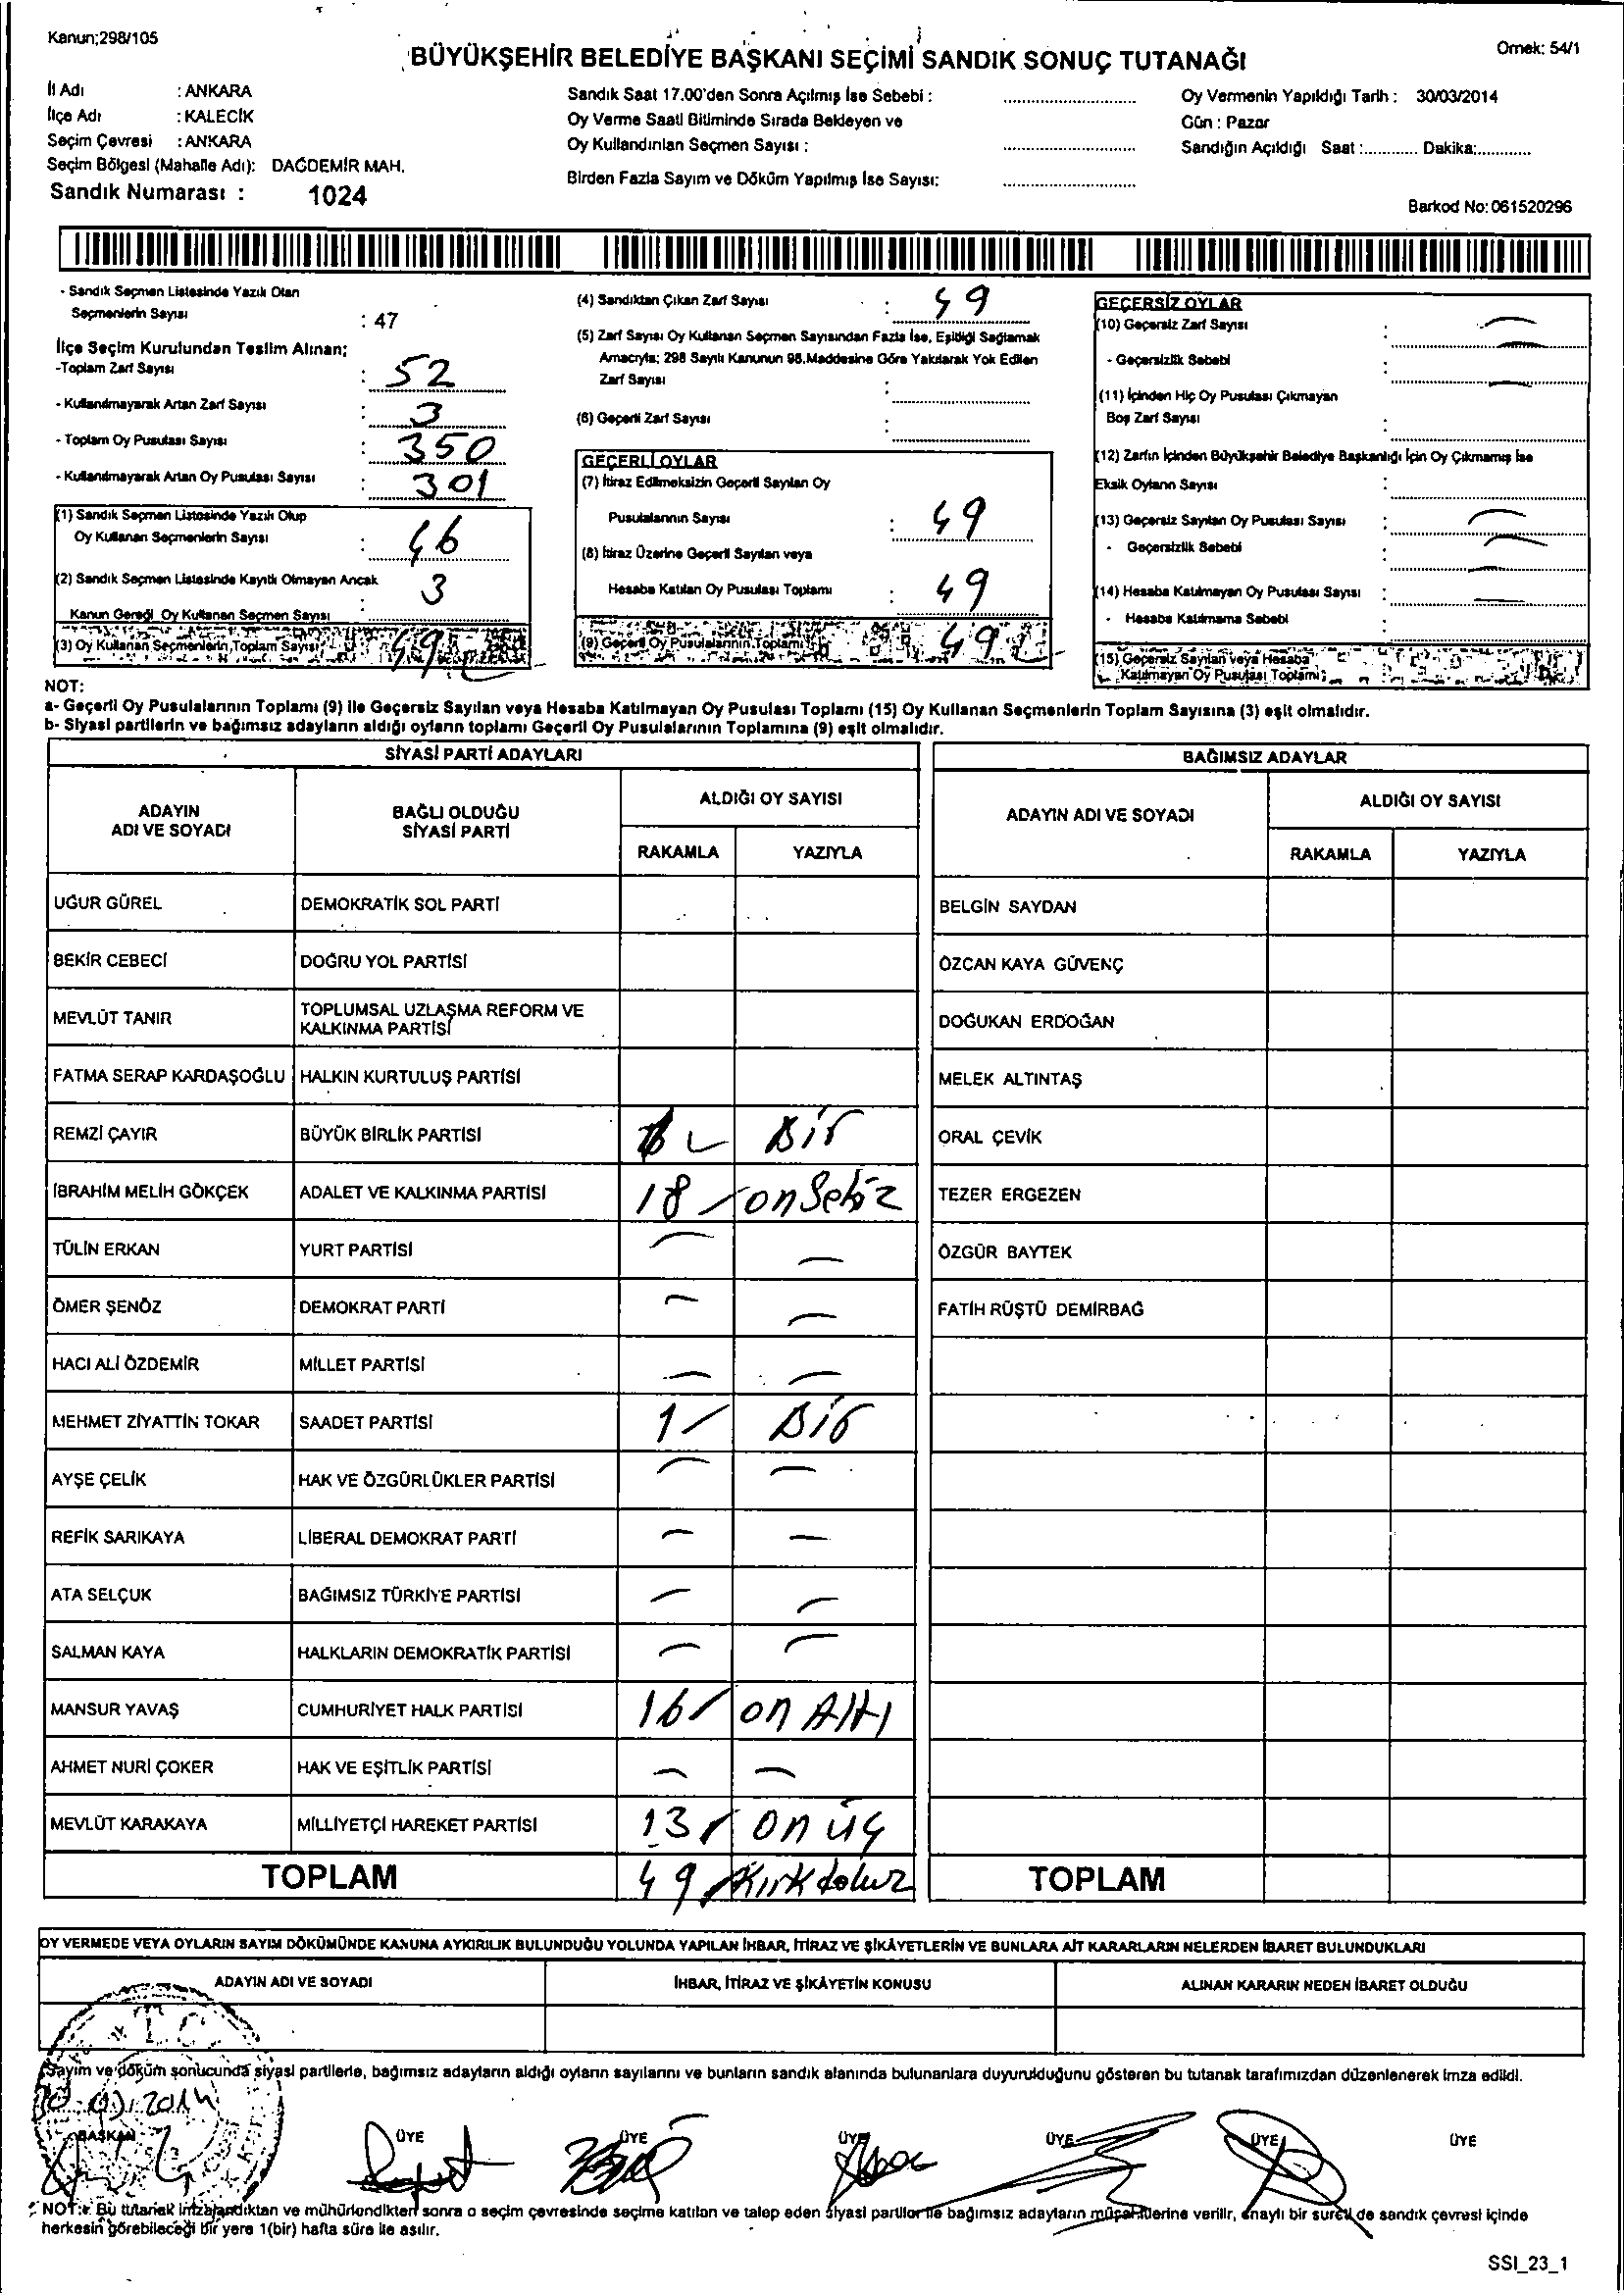 Kanun;298/105
Örnek: 54/1
BÜYÜKŞEHİR BELEDİYE BAŞKANI SEÇİMİ SANDIK SONUÇ TUTANAĞI
İl Adı : ANKARA
İlçe Adı : KALECİK
Seçim Çevresi : ANKARA
Seçim Bölgesi (Mahalle Adı): DAĞDEMİR MAH.
Sandık Numarası : 1024
Sandık Saat 17.00'den Sonra Açılmış İse Sebebi :
Oy Verme Saati Bitiminde Sırada Bekleyen ve
Oy Kullandırılan Seçmen Sayısı :
Birden Fazla Sayım ve Döküm Yapılmış İse Sayısı:
Oy Vermenin Yapıldığı Tarih : 30/03/2014
Gün : Pazar
Sandığın Açıldığı Saat :............ Dakika:............
Barkod No: 061520296
- Sandık Seçmen Listesinde Yazılı Olan
Seçmenlerin Sayısı : 47
İlçe Seçim Kurulundan Teslim Alınan;
-Toplam Zarf Sayısı : 52
- Kullanılmayarak Artan Zarf Sayısı : 3
- Toplam Oy Pusulası Sayısı : 350
- Kullanılmayarak Artan Oy Pusulası Sayısı : 301
(1) Sandık Seçmen Listesinde Yazılı Olup
Oy Kullanan Seçmenlerin Sayısı : 46
(2) Sandık Seçmen Listesinde Kayıtlı Olmayan Ancak
Kanun Gereği Oy Kullanan Seçmen Sayısı : 3
(3) Oy Kullanan Seçmenlerin Toplam Sayısı 49
(4) Sandıktan Çıkan Zarf Sayısı : 49
(5) Zarf Sayısı Oy Kullanan Seçmen Sayısından Fazla İse, Eşitliği Sağlamak
Amacıyla; 298 Sayılı Kanunun 98.Maddesine Göre Yakılarak Yok Edilen
Zarf Sayısı :
(6) Geçerli Zarf Sayısı :
GEÇERLİ OYLAR
(7) İtiraz Edilmeksizin Geçerli Sayılan Oy
Pusulalarının Sayısı : 49
(8) İtiraz Üzerine Geçerli Sayılan veya
Hesaba Katılan Oy Pusulası Toplamı : 49
(9) Geçerli Oy Pusulalarının Toplamı 49
GEÇERSİZ OYLAR
(10) Geçersiz Zarf Sayısı : —
- Geçersizlik Sebebi : —
(11) İçinden Hiç Oy Pusulası Çıkmayan
Boş Zarf Sayısı : —
(12) Zarfın İçinden Büyükşehir Belediye Başkanlığı İçin Oy Çıkmamış İse
Eksik Oyların Sayısı :
(13) Geçersiz Sayılan Oy Pusulası Sayısı : —
- Geçersizlik Sebebi : —
(14) Hesaba Katılmayan Oy Pusulası Sayısı : —
- Hesaba Katılmama Sebebi :
(15) Geçersiz Sayılan veya Hesaba
Katılmayan Oy Pusulası Toplamı
NOT:
a- Geçerli Oy Pusulalarının Toplamı (9) ile Geçersiz Sayılan veya Hesaba Katılmayan Oy Pusulası Toplamı (15) Oy Kullanan Seçmenlerin Toplam Sayısına (3) eşit olmalıdır.
b- Siyasi partilerin ve bağımsız adayların aldığı oyların toplamı Geçerli Oy Pusulalarının Toplamına (9) eşit olmalıdır.
SİYASİ PARTİ ADAYLARI
ADAYIN ADI VE SOYADI BAĞLI OLDUĞU SİYASİ PARTİ ALDIĞI OY SAYISI
RAKAMLA YAZIYLA
UĞUR GÜREL DEMOKRATİK SOL PARTİ
BEKİR CEBECİ DOĞRU YOL PARTİSİ
MEVLÜT TANIR TOPLUMSAL UZLAŞMA REFORM VE KALKINMA PARTİSİ
FATMA SERAP KARDAŞOĞLU HALKIN KURTULUŞ PARTİSİ
REMZİ ÇAYIR BÜYÜK BİRLİK PARTİSİ Bir
İBRAHİM MELİH GÖKÇEK ADALET VE KALKINMA PARTİSİ 18 onSekiz
TÜLİN ERKAN YURT PARTİSİ — —
ÖMER ŞENÖZ DEMOKRAT PARTİ — —
HACI ALİ ÖZDEMİR MİLLET PARTİSİ — —
MEHMET ZİYATTİN TOKAR SAADET PARTİSİ 1 Bir
AYŞE ÇELİK HAK VE ÖZGÜRLÜKLER PARTİSİ — —
REFİK SARIKAYA LİBERAL DEMOKRAT PARTİ — —
ATA SELÇUK BAĞIMSIZ TÜRKİYE PARTİSİ — —
SALMAN KAYA HALKLARIN DEMOKRATİK PARTİSİ — —
MANSUR YAVAŞ CUMHURİYET HALK PARTİSİ 16 on Altı
AHMET NURİ ÇOKER HAK VE EŞİTLİK PARTİSİ — —
MEVLÜT KARAKAYA MİLLİYETÇİ HAREKET PARTİSİ 13 on üç
TOPLAM 49 Kırkdokuz
BAĞIMSIZ ADAYLAR
ADAYIN ADI VE SOYADI ALDIĞI OY SAYISI
RAKAMLA YAZIYLA
BELGİN SAYDAN
ÖZCAN KAYA GÜVENÇ
DOĞUKAN ERDOĞAN
MELEK ALTINTAŞ
ORAL ÇEVİK
TEZER ERGEZEN
ÖZGÜR BAYTEK
FATİH RÜŞTÜ DEMİRBAĞ
TOPLAM
OY VERMEDE VEYA OYLARIN SAYIM DÖKÜMÜNDE KANUNA AYKIRILIK BULUNDUĞU YOLUNDA YAPILAN İHBAR, İTİRAZ VE ŞİKÂYETLERİN VE BUNLARA AİT KARARLARIN NELERDEN İBARET BULUNDUKLARI
ADAYIN ADI VE SOYADI İHBAR, İTİRAZ VE ŞİKÂYETİN KONUSU ALINAN KARARIN NEDEN İBARET OLDUĞU
Sayım ve döküm sonucunda siyasi partilerle, bağımsız adayların aldığı oyların sayılarını ve bunların sandık alanında bulunanlara duyurulduğunu gösteren bu tutanak tarafımızdan düzenlenerek imza edildi.
30.03.2014
BAŞKAN ÜYE ÜYE ÜYE ÜYE ÜYE ÜYE
NOT: Bu tutanak imzalandıktan ve mühürlendikten sonra o seçim çevresinde seçime katılan ve talep eden siyasi partiler ile bağımsız adayların müşahitlerine verilir, onaylı bir sureti de sandık çevresi içinde
herkesin görebileceği bir yere 1(bir) hafta süre ile asılır.
SSI_23_1